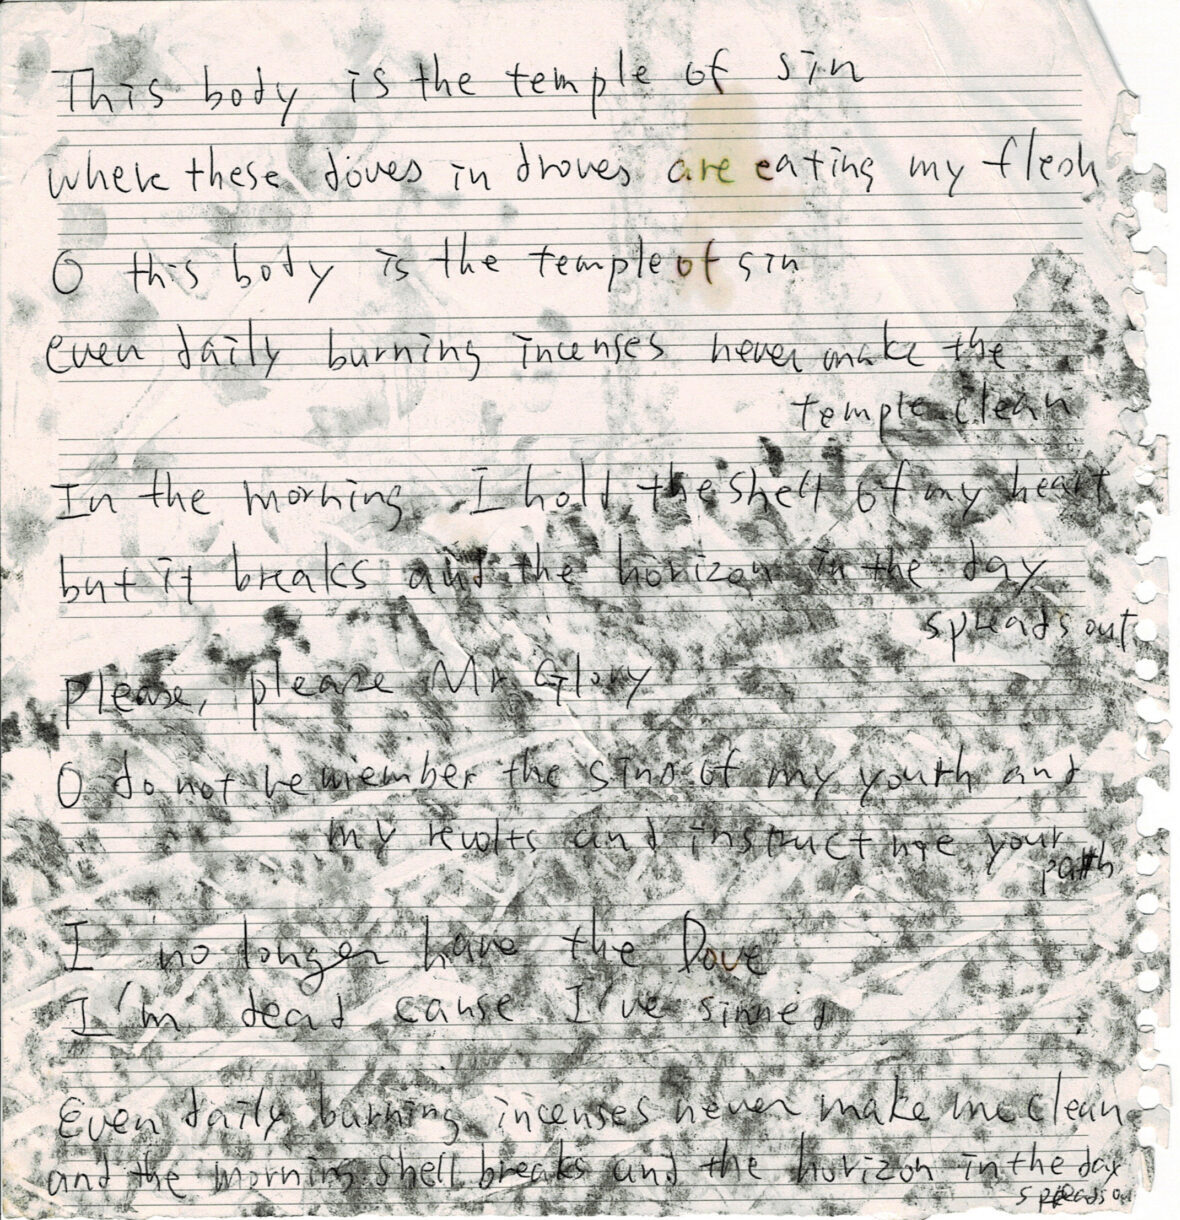 This body is the temple of sin
where these doves in droves are eating my flesh
O this body is the temple of sin
even daily burning incenses never make the
temple clean
In the morning I hold the shell of my heart
but it breaks and the horizon in the day
spreads out
please, please Mr Glory
O do not remember the sins of my youth and
my revolts and instruct me your
path
I no longer have the Dove
I'm dead cause I've sinned
Even daily burning incenses never make me clean
and the morning shell breaks and the horizon in the day
spreads out